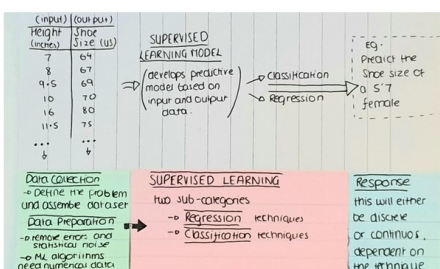 (input) (output)
Height Shoe
(inches) Size (US)
7 64
8 67
9.5 69
10 70
16 80
11.5 75
... ...
SUPERVISED
LEARNING MODEL
(develops predictive
model based on
input and output
data.)
Classification
Regression
EG.
Predict the
Shoe size of
a 5'7
female
Data Collection
→ Define the problem
and assemble dataset
Data Preparation
→ remove error and
statistical noise
→ ML algorithms
need numerical data
SUPERVISED LEARNING
two sub-categories
→ Regression techniques
→ Classification techniques
Response
this will either
be discrete
or continuos.
dependent on
the technique